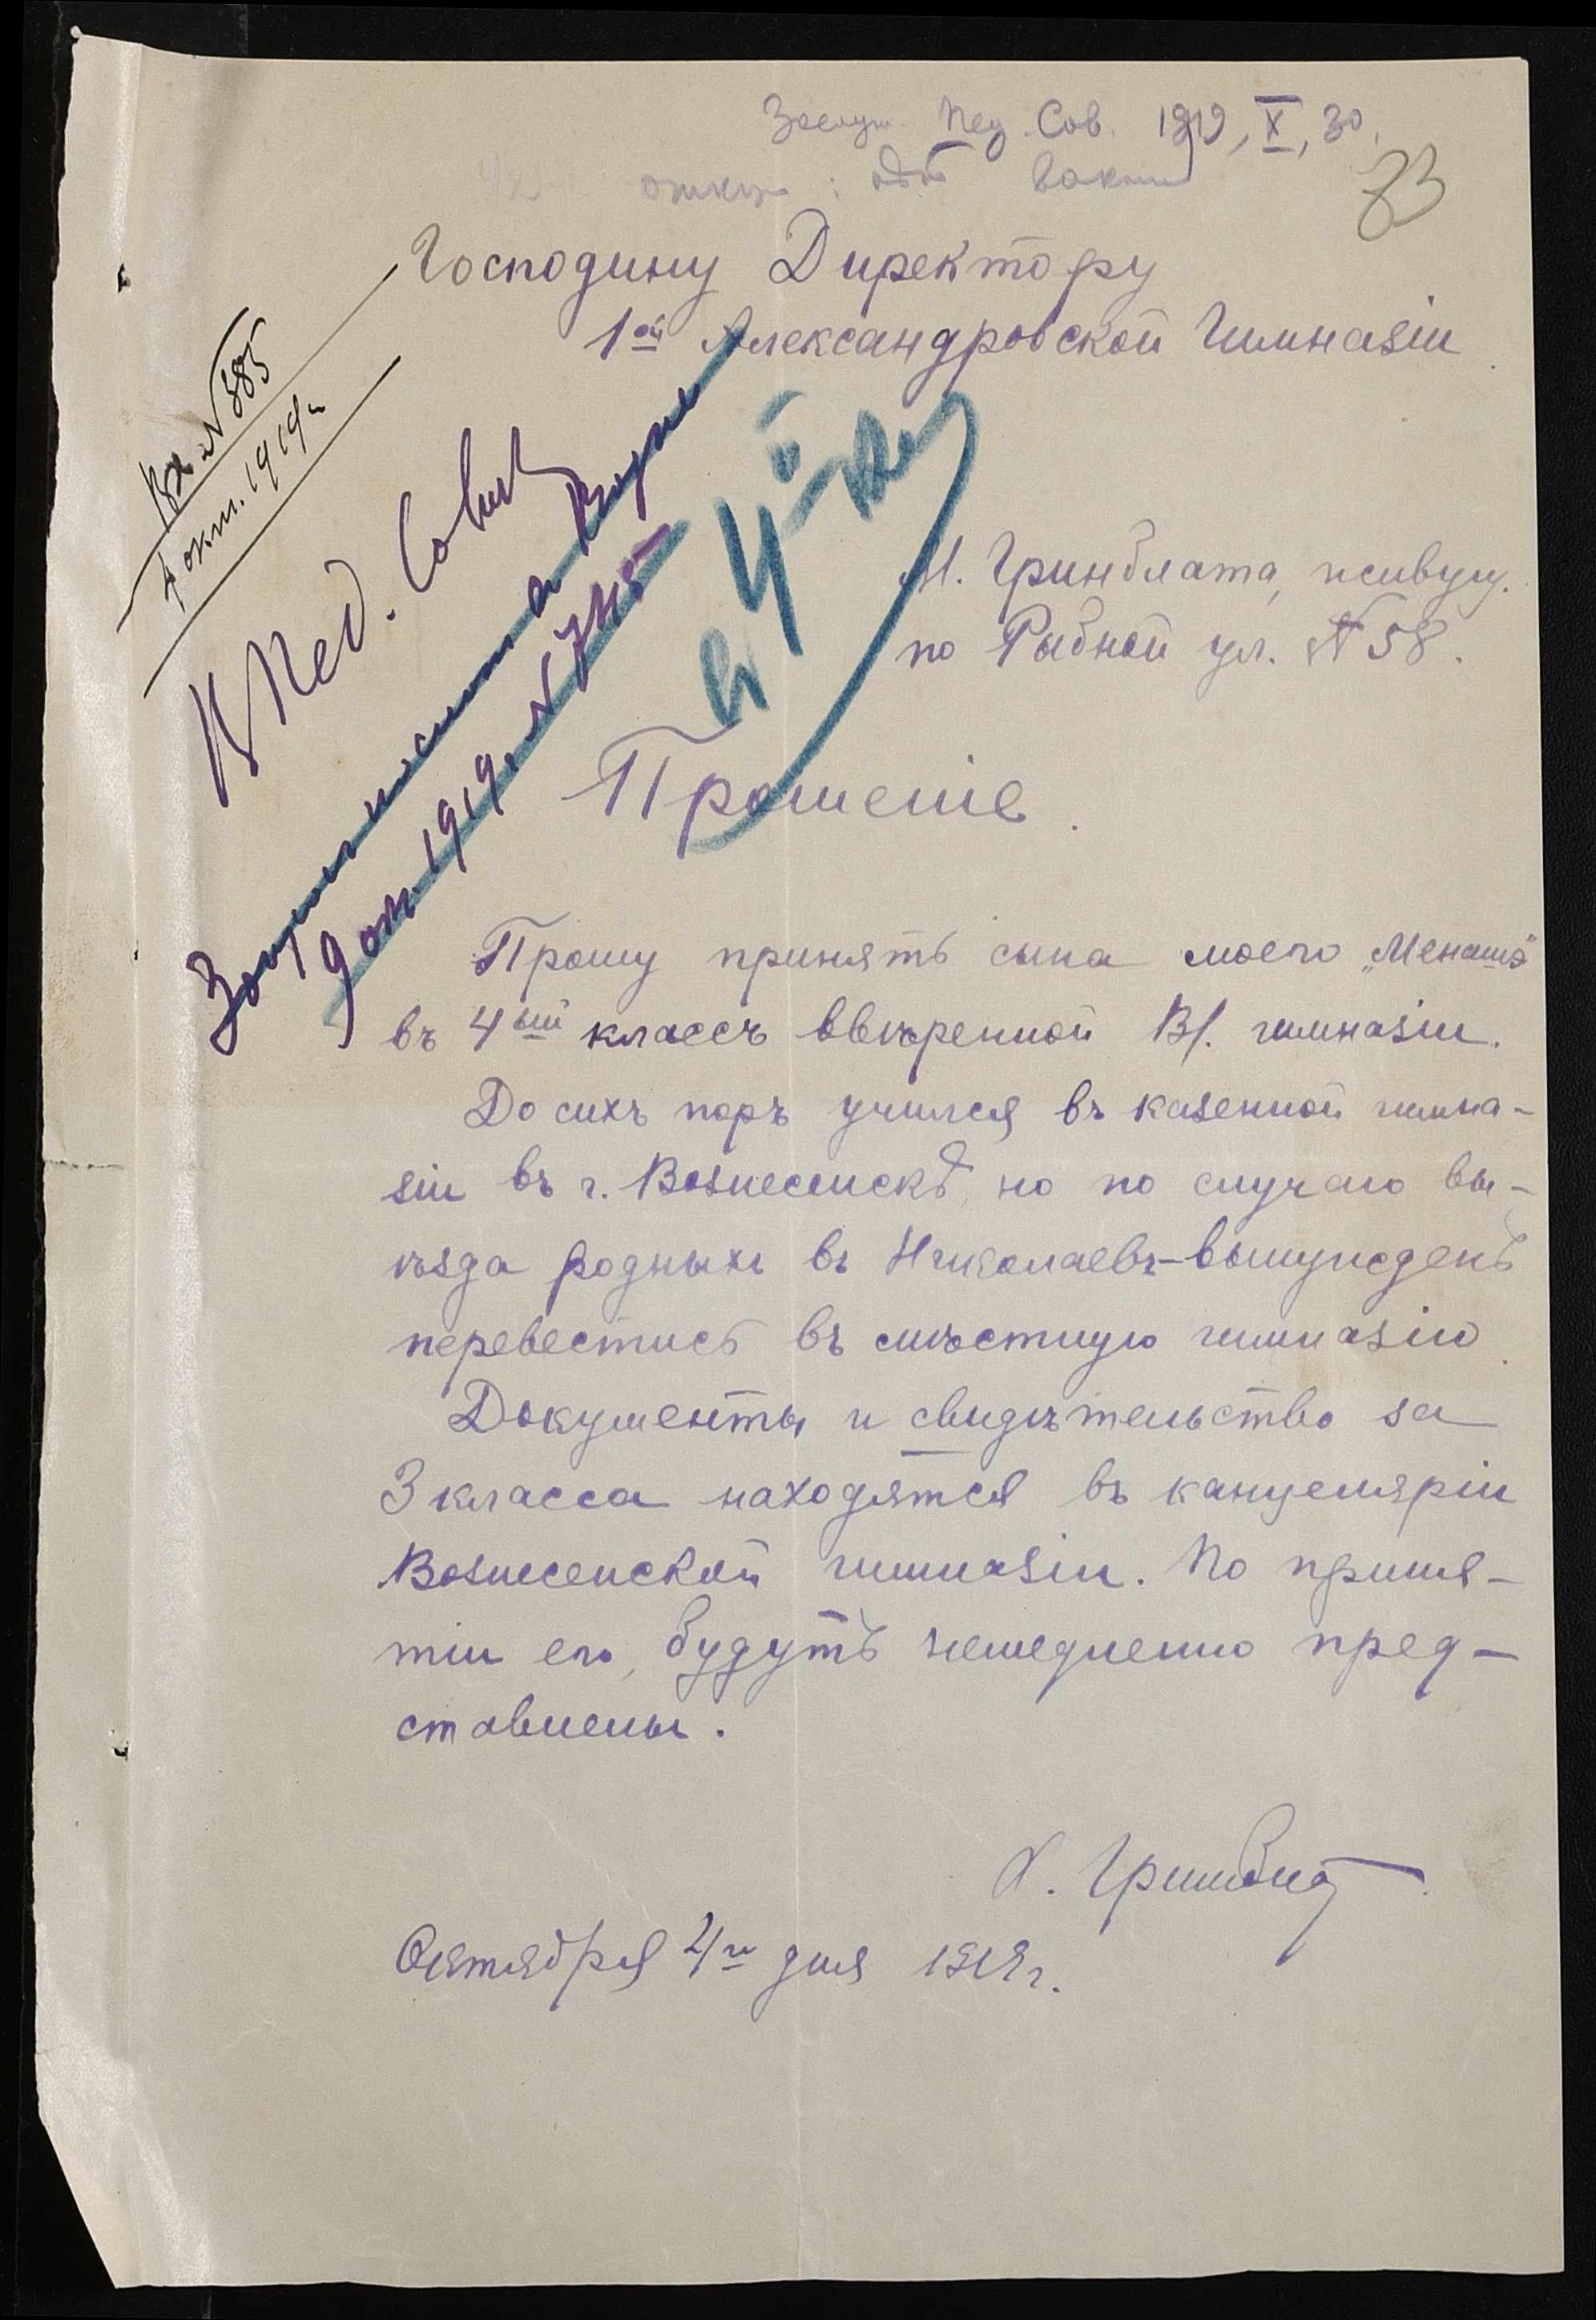 Пед. Сов. 1919, X, 30,
73
Господину Директору
1ой Александровской Гимназіи
Вх. № 385
4 окт. 1919 г.
К Пед. Совету
в 4й кл.
9 окт. 1919 г. №
М. Гринблата, живущ.
по Рыбной ул. № 58.
Прошеніе.
Прошу принять сына моего „Менаше"
въ 4ый классъ ввѣренной Вf. гимназіи.
До сихъ поръ учился въ казенной гимна-
зіи въ г. Вознесенскѣ, но по случаю вы-
ѣзда родныхъ въ Николаевъ-вынужденъ
перевестись въ мѣстную гимназію.
Документы и свидѣтельство за
3 класса находятся въ канцеляріи
Вознесенской гимназіи. По приня-
тіи его, будутъ немедленно пред-
ставлены.
Гринблат
Октября 4го дня 1919 г.